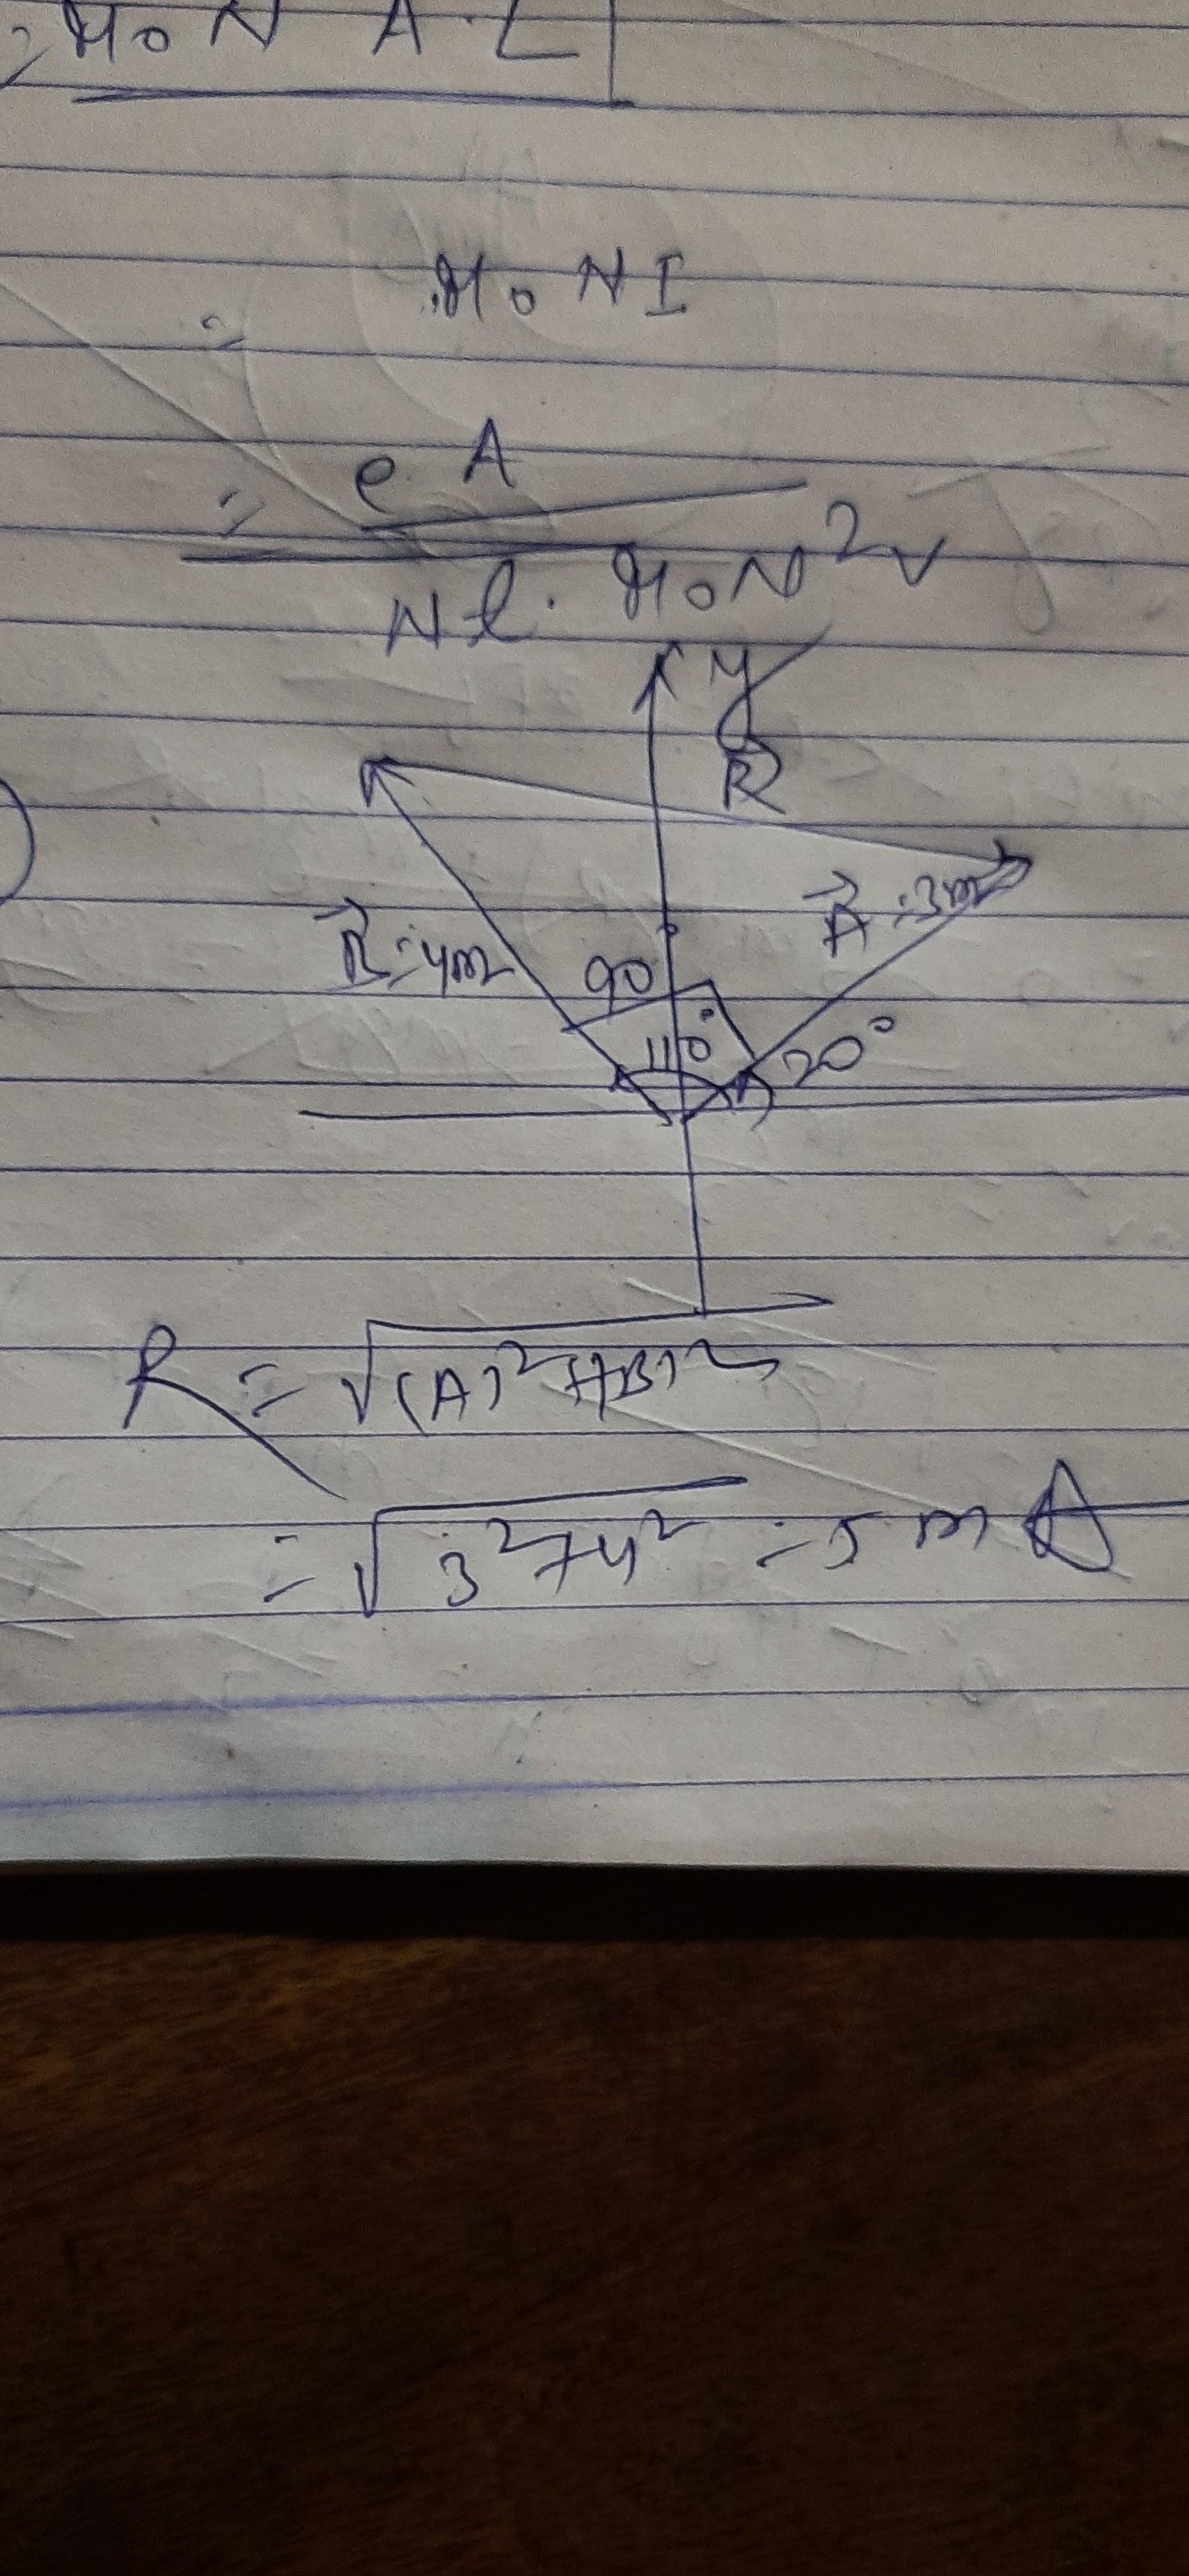 = μ₀ N A. L
= μ₀ N I
= e. A
N l. μ₀ N² v
y
R
B⃗ = 4m
A⃗ = 3m
90°
110°
20°
R = √(A)² + (B)²
= √3² + 4² = 5 m A